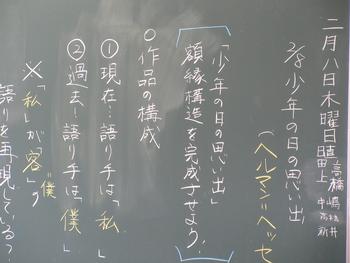 二月八日木曜日 日直
高橋
嶋田
上
中
高橋
新井
2/8 少年の日の思い出
(ヘルマン=ヘッセ
「少年の日の思い出」
額縁構造を完成させよう!
○作品の構成
①現在…語り手は「私」
②過去!語り手は「僕」
※「私」が「客」う
僕
語りを再現している?